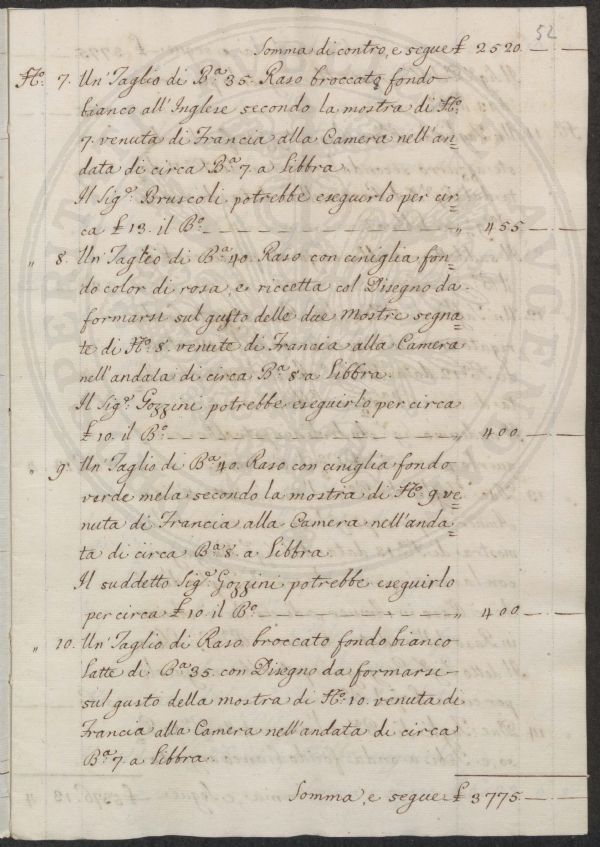 52
Somma di contro, e segue £ 2520. — —
N.º 7. Un' Taglio di B.ª 35. Raso broccato fondo
bianco all' Inglese secondo la mostra di N.º
7. venuta di Francia alla Camera nell' an=
data di circa B.ª 7. a Libbra.
Il Sig.r Bruscoli potrebbe eseguirlo per cir=
ca £ 13. il B.º — — — — — — — — — „ 455 — —
„ 8. Un' Taglio di B.ª 40. Raso con ciniglia fon=
do color di rosa, e riccetta col Disegno da
formarsi sul gusto delle due Mostre segna=
te di N.º 8. venute di Francia alla Camera
nell' andata di circa B.ª 8. a Libbra.
Il Sig.r Gozzini potrebbe eseguirlo per circa
£ 10. il B.º — — — — — — — — — „ 400. — —
„ 9. Un' Taglio di B.ª 40. Raso con ciniglia fondo
verde mela secondo la mostra di N.º 9. ve=
nuta di Francia alla Camera nell' anda=
ta di circa B.ª 8. a Libbra.
Il suddetto Sig.r Gozzini potrebbe eseguirlo
per circa £ 10. il B.º — — — — — — „ 400 — —
„ 10. Un' Taglio di Raso broccato fondo bianco
Latte di B.ª 35. con Disegno da formarsi
sul gusto della mostra di N.º 10. venuta di
Francia alla Camera nell' andata di circa
B.ª 7. a Libbra.
Somma, e segue £ 3775 — —